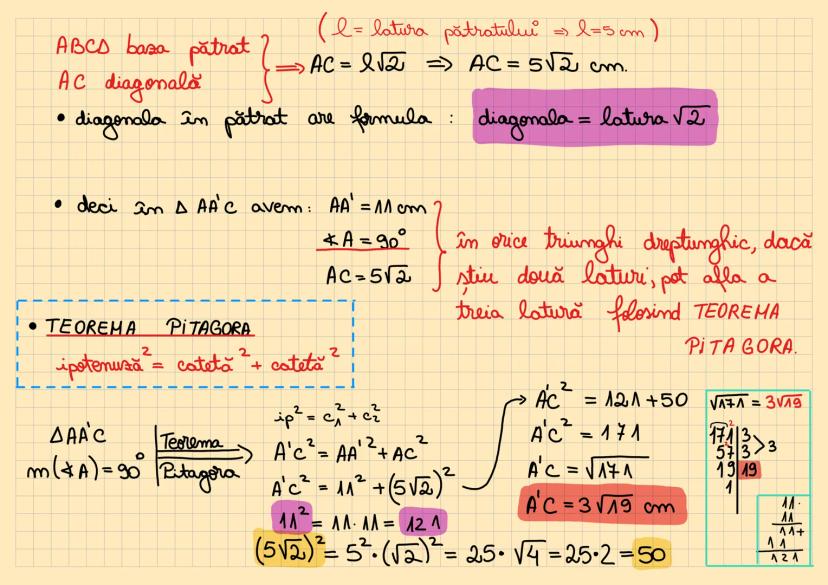 ( l = latura pătratului ⇒ l=5 cm )
ABCD baza pătrat
AC diagonală
⇒ AC = l√2 ⇒ AC = 5√2 cm.
• diagonala în pătrat are formula : diagonala = latura √2
• deci în Δ AA'C avem: AA' = 11 cm
∢A = 90°
AC = 5√2
în orice triunghi dreptunghic, dacă
știu două laturi, pot afla a
treia latură folosind TEOREMA
PITAGORA.
• TEOREMA PITAGORA
ipotenuză² = catetă² + catetă²
ΔAA'C
m(∢A) = 90°
Teorema
Pitagora
ip² = c₁² + c₂²
A'C² = AA'² + AC²
A'C² = 11² + (5√2)²
11² = 11 · 11 = 121
(5√2)² = 5² · (√2)² = 25 · √4 = 25 · 2 = 50
A'C² = 121 + 50
A'C² = 171
A'C = √171
A'C = 3√19 cm
√171 = 3√19
171 | 3
57 | 3 > 3
19 | 19
1
11 ·
11
11 +
11
121